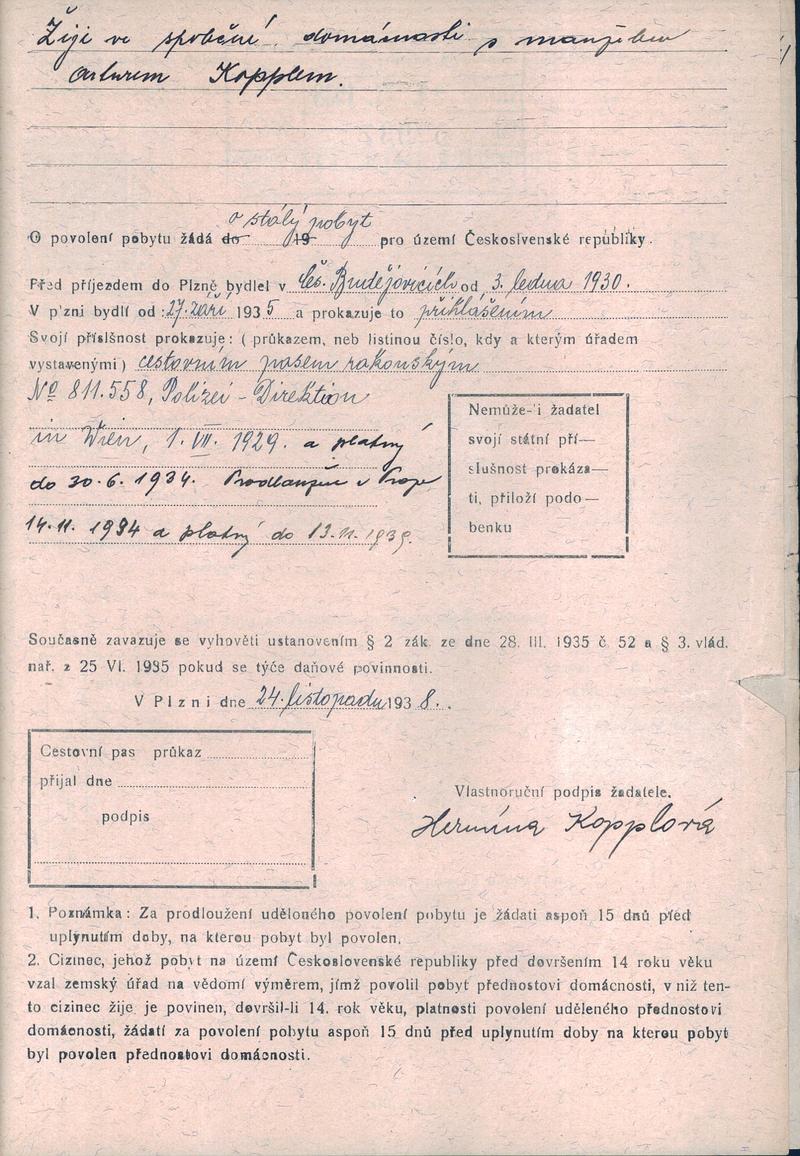 Žije ve společné domácnosti s manželem
Arturem Kopplem.
o stálý pobyt
O povolení pobytu žádá do 19 pro území Československé republiky.
Před příjezdem do Plzně bydlel v Čes. Budějovicích od 3. ledna 1930.
V p'zni bydlí od : 27. září 1935 a prokazuje to přihlášením
Svojí příslšnost prokazuje : ( průkazem, neb listinou číslo, kdy a kterým úřadem
vystavenými ) cestovním pasem rakouským
No 811.558, Polizei - Direktion
in Wien, 1. VII. 1929. a platný
do 30. 6. 1934. Prodloužen v Praze
14. 11. 1934 a platný do 13. 11. 1939.
Nemůže-'i žadatel
svojí státní pří—
slušnost prokáza—
ti, přiloží podo—
benku
Současně zavazuje se vyhověti ustanovením § 2 zák. ze dne 28. III. 1935 č. 52 a § 3. vlád.
nař. z 25 VI. 1935 pokud se týče daňové povinnosti.
V Plzni dne 24. listopadu 1938. .
Cestovní pas průkaz
přijal dne
podpis
Vlastnoruční podpis žadatele.
Hermína Kopplová
1. Poznámka : Za prodloužení uděloného povolení pobytu je žádati aspoň 15 dnů před
uplynutím doby, na kterou pobyt byl povolen.
2. Cizinec, jehož pobyt na území Československé republiky před dovršením 14 roku věku
vzal zemský úřad na vědomí výměrem, jímž povolil pobyt přednostovi domácnosti, v níž ten-
to cizinec žije je povinen, dovršil-li 14. rok věku, platnosti povolení uděleného přednostovi
domácnosti, žádatí za povolení pobytu aspoň 15 dnů před uplynutím doby na kterou pobyt
byl povolen přednostovi domácnosti.